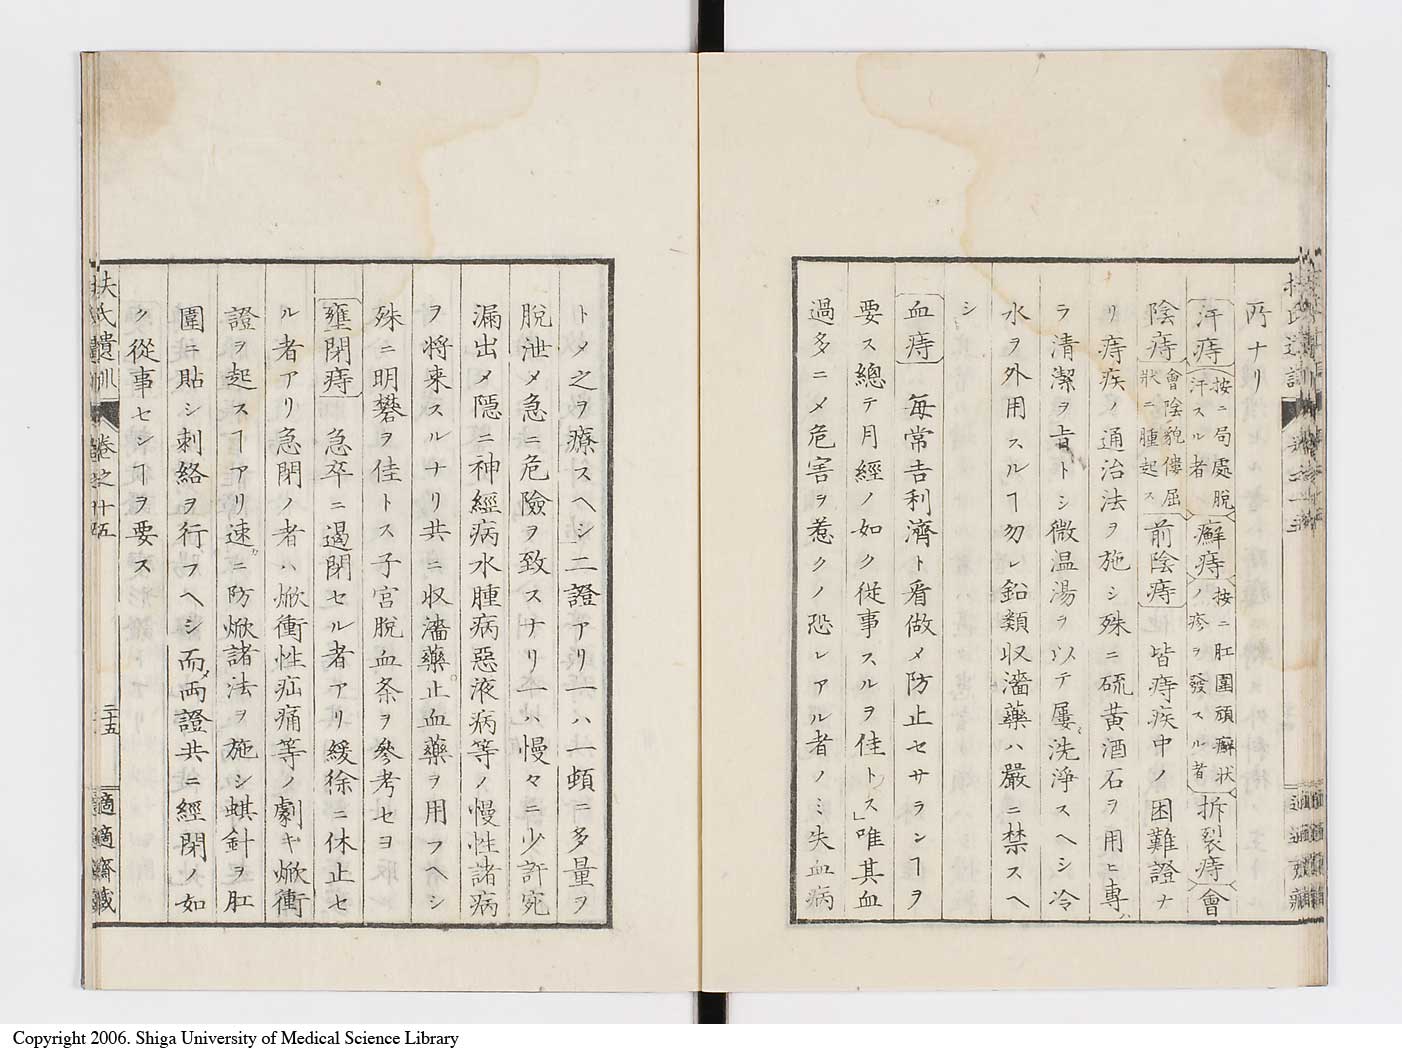 所ナリ
汗痔 按ニ局處脱汗スル者 癬痔 按ニ肛圍頑癬状ノ疹ヲ發スル者 拆裂痔 會
陰痔 會陰貌僂屈狀ニ腫起ス 前陰痔 皆痔疾中ノ困難證ナ
リ痔疾ノ通治法ヲ施シ殊ニ硫黄酒石ヲ用ヒ專
ラ清潔ヲ旨トシ微温湯ヲ以テ屢洗淨スヘシ冷
水ヲ外用スルヿ勿レ鉛類収濇藥ハ嚴ニ禁スヘ
シ
血痔 毎常吉利濟ト看做メ防止セサランヿヲ
要ス總テ月經ノ如ク従事スルヲ佳トス」唯其血
過多ニメ危害ヲ惹クノ恐レアル者ノミ失血病
トメ之ヲ療スヘシ二證アリ一ハ一頓ニ多量ヲ
脫泄メ急ニ危險ヲ致スナリ一ハ慢々ニ少許宛
漏出メ隱ニ神經病水腫病惡液病等ノ慢性諸病
ヲ将来スルナリ共ニ収濇藥止血藥ヲ用フヘシ
殊ニ明礬ヲ佳トス子宮脫血条ヲ參考セヨ
壅閉痔 急卒ニ遏閉セル者アリ緩徐ニ休止セ
ル者アリ急閉ノ者ハ焮衝性疝痛等ノ劇キ焮衝
證ヲ起スヿアリ速ニ防焮諸法ヲ施シ蜞針ヲ肛
圍ニ貼シ刺絡ヲ行フヘシ而メ両證共ニ經閉ノ如
ク從事センヿヲ要ス
扶氏遺訓 卷之十五
二十五
適適齋藏
Copyright 2006. Shiga University of Medical Science Library